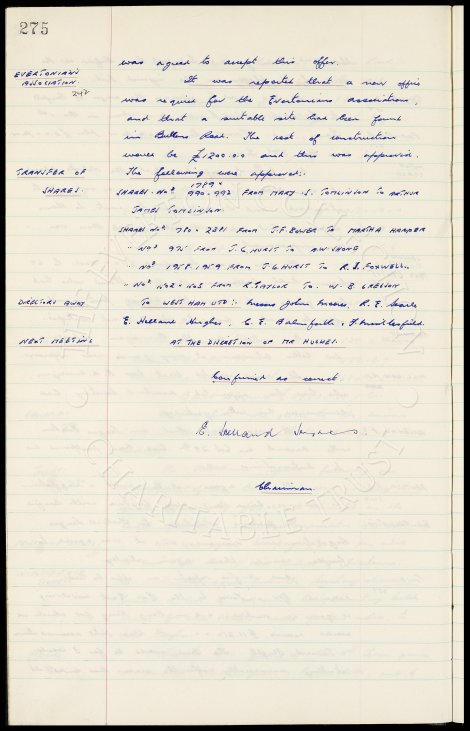 275
was agreed to accept this offer.
EVERTONIANS
ASSOCIATION.
242
It was reported that a new office
was required for the Evertonians association,
and that a suitable site had been found
in Bullens Road. The cost of construction
would be £1200.0.0 and this was approved.
TRANSFER OF
SHARES.
The following were approved:-
1789 &
SHARES. NOS 990-992 FROM MARY. S. TOMLINSON TO ARTHUR
JAMES TOMLINSON
SHARES NOS 780 - 2281 FROM J.F. BOWER TO MARTHA HARPER
" NOS 975 FROM J. G HURST TO A.W SHONE
" NOS 1958-1959 FROM J. G HURST TO R. S. FOXWELL.
" NOS 402 & 403 FROM R. TAYLOR TO. W. B GREGSON
DIRECTORS AWAY
TO WEST HAM UTD :- Messrs John Moores, R. E. Searle
E. Holland Hughes, C. E. Balmforth & F. Micklesfield.
NEXT MEETING
AT THE DISCRETION OF MR HUGHES.
Confirmed as correct.
E. Holland Hughes.
Chairman.
THE EVERTON COLLECTION
CHARITABLE TRUST